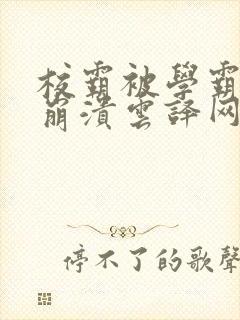 校霸被學霸
崩潰雲譯网
停不了的歌聲